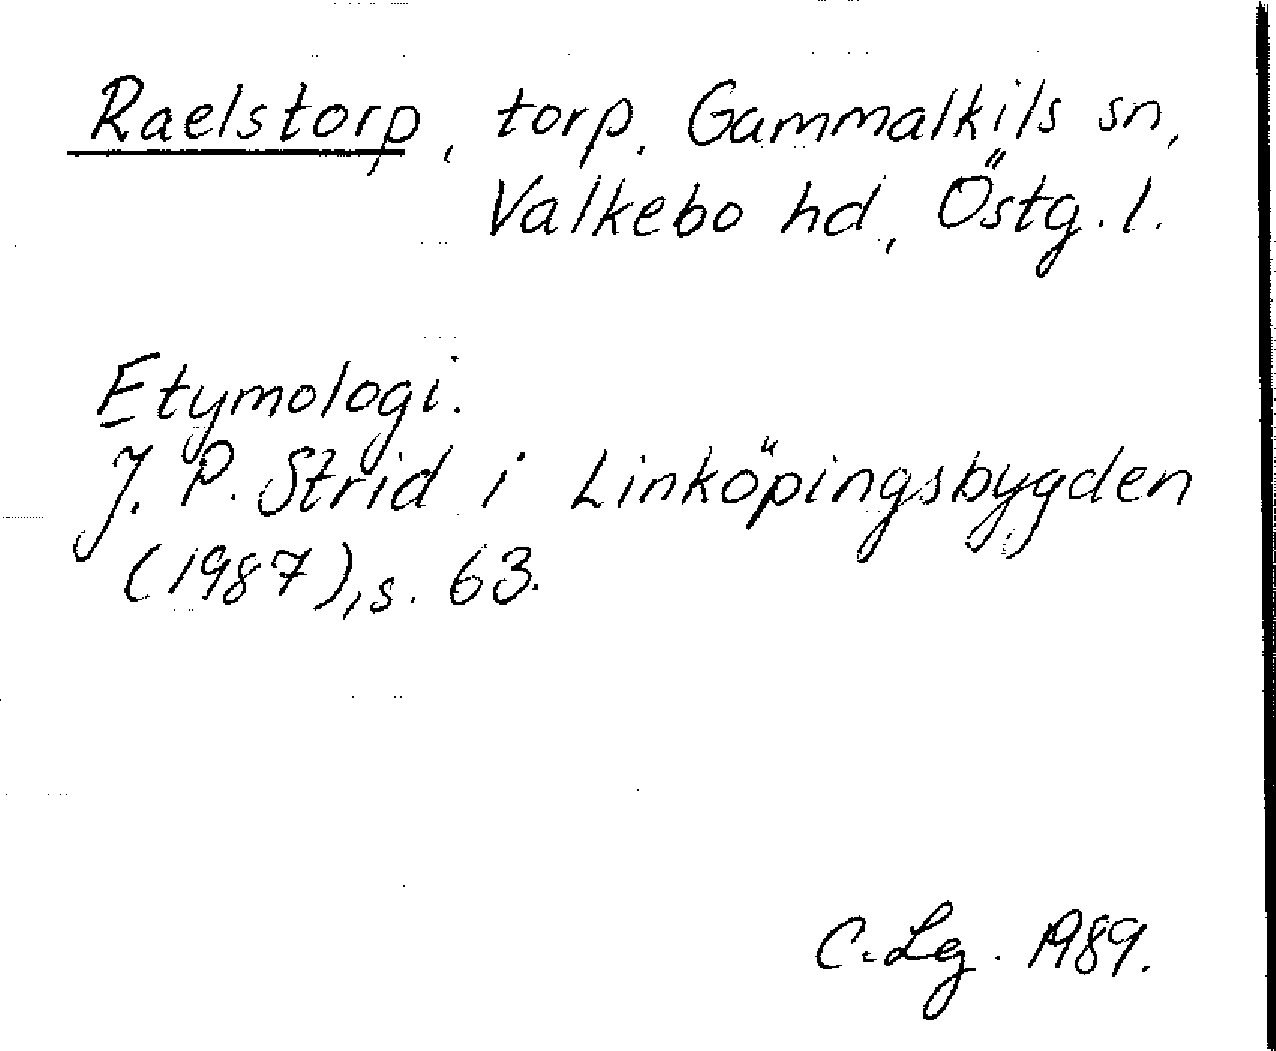 Raelstorp, torp. Gammalkils sn,
Valkebo hd, Östg. l.
Etymologi.
J. P. Strid i Linköpingsbygden
(1987), s. 63.
C. Lg. 1989.